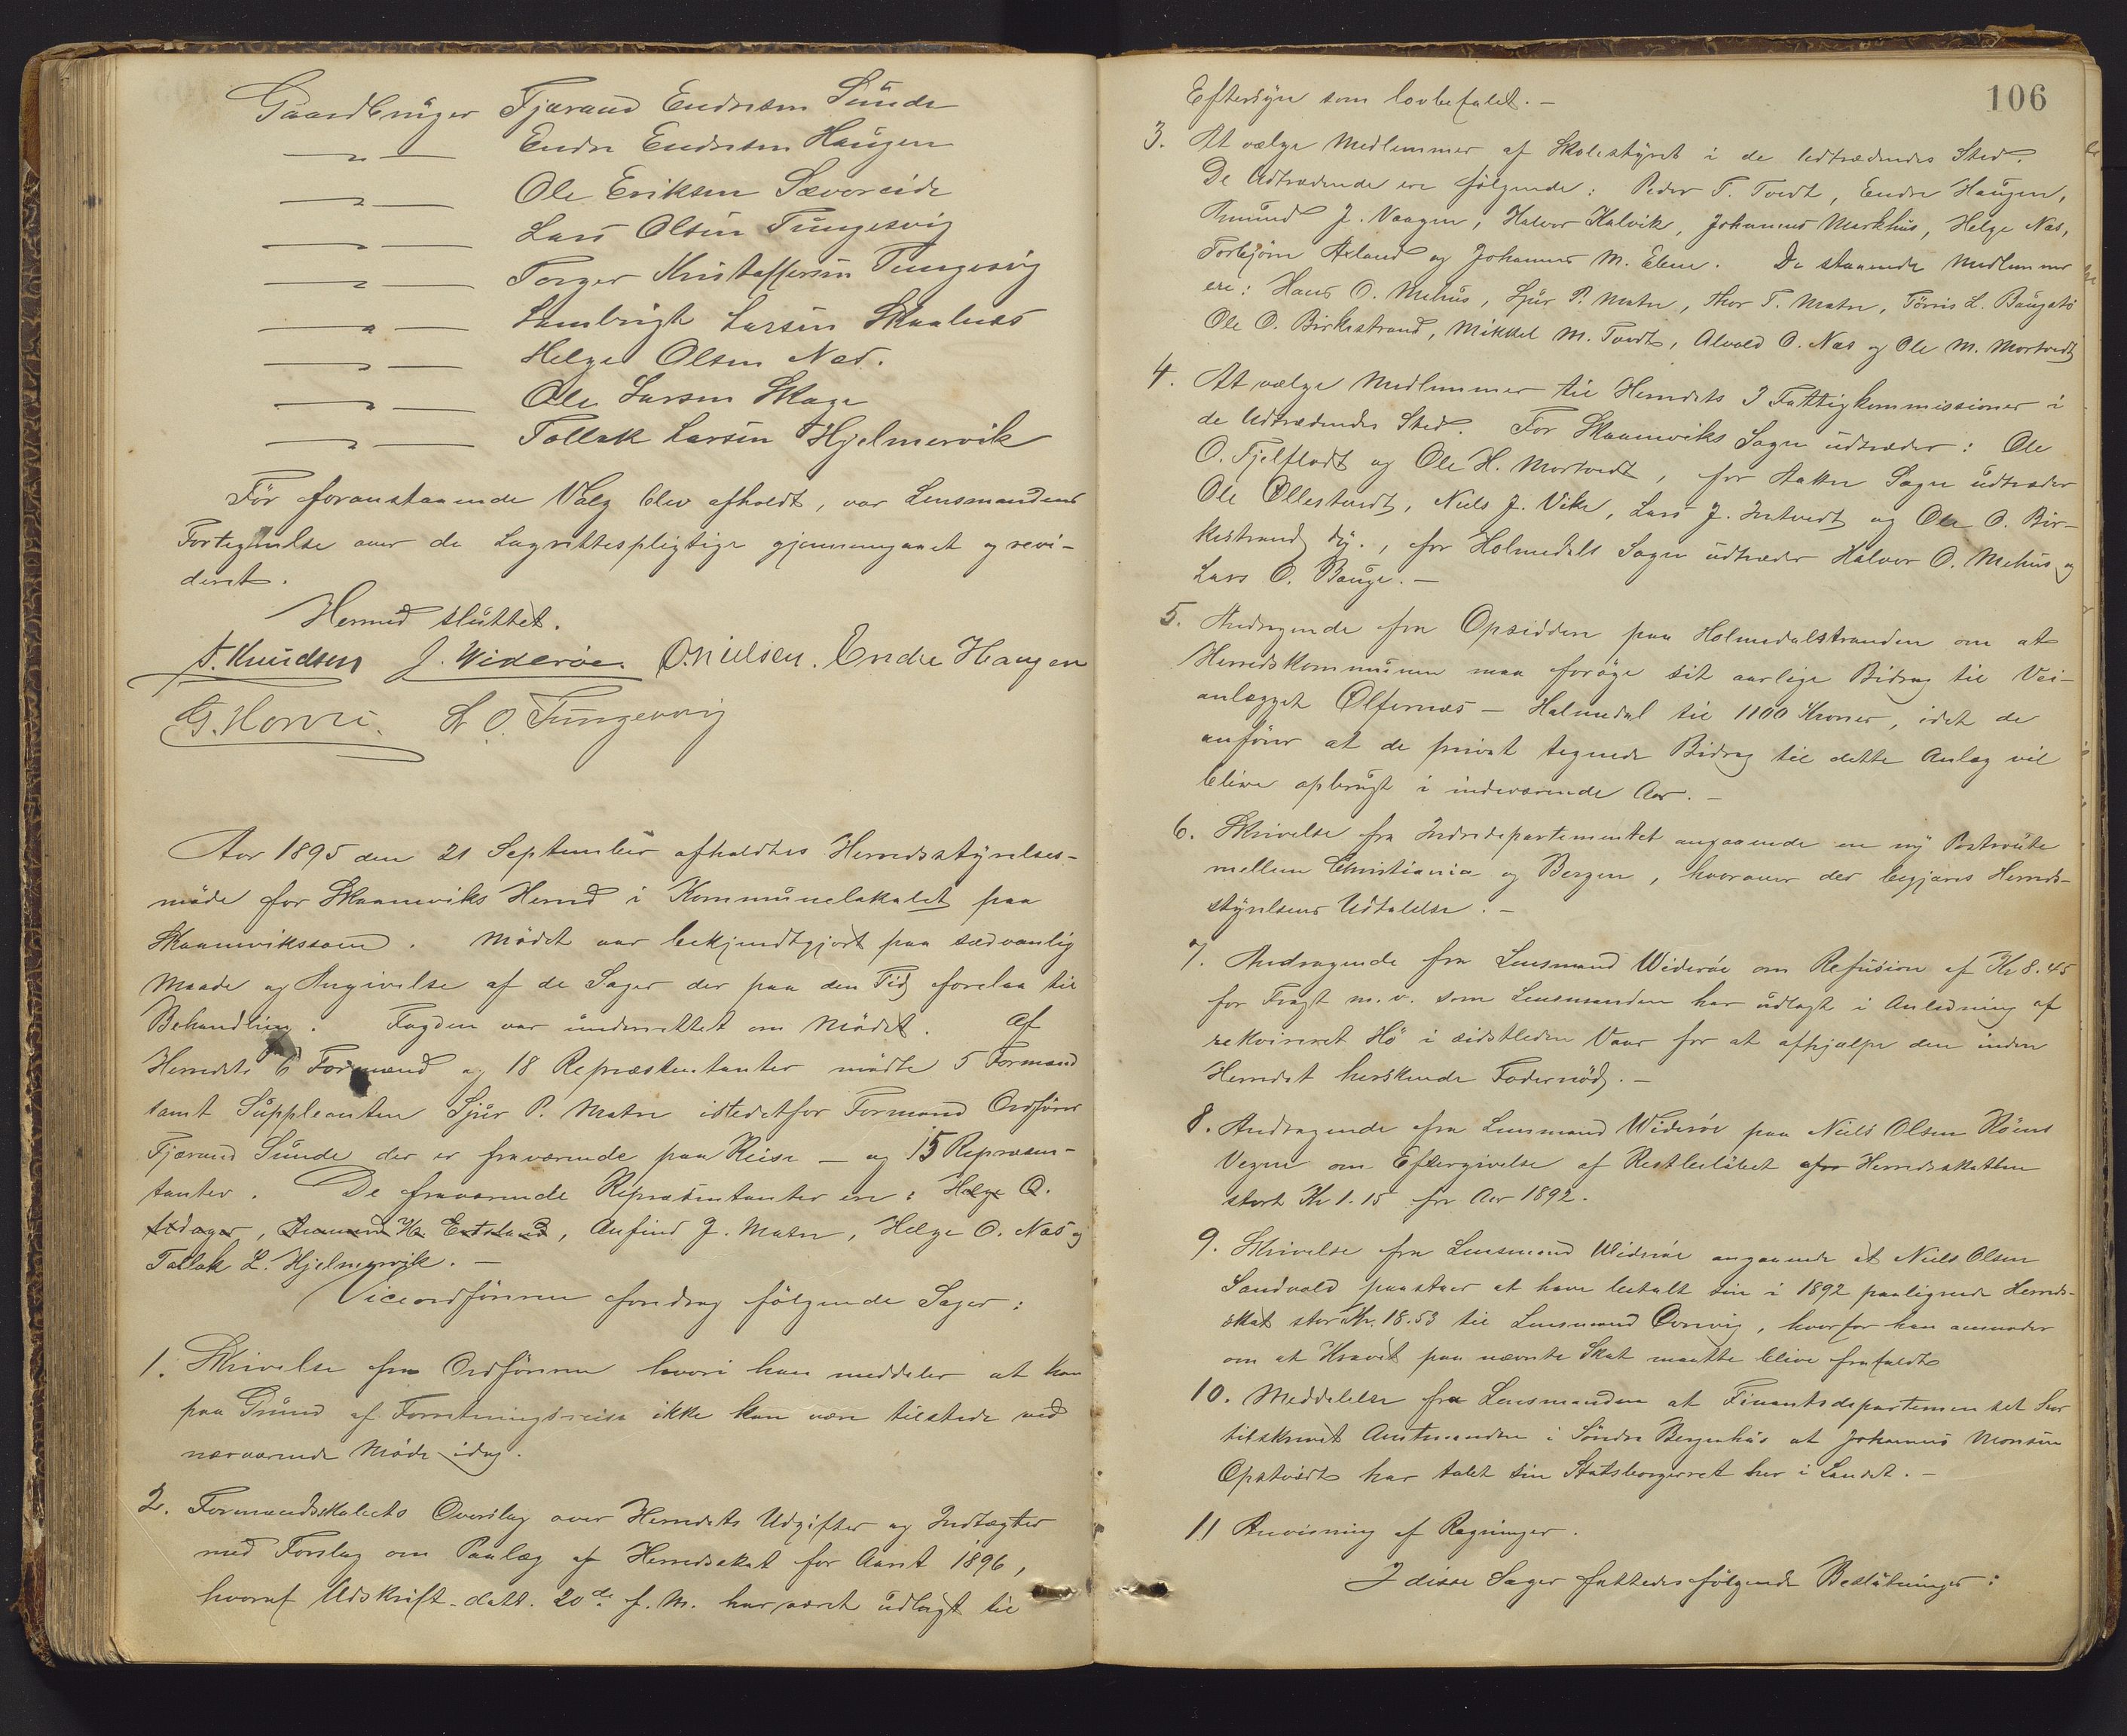 Gaardbruger Tjærand Endresen Sunde
—〃— Endre Endresen Haugen
—〃— Ole Eriksen Sævereide
—〃— Lars Olsen Tungesvig
—〃— Torger Kristoffersen Tungesvig
—〃— Lambrigt Larsen Skaalnes
—〃— Helge Olsen Næs.
—〃— Ole Larsen Skage
—〃— Tollak Larsen Hjelmervik
Før foranstaaende Valg blev afholdt, var Lensmandens
Fortegnelse over de Lagrettespligtige gjennemgaaet og revi-
deret.
Hermed sluttet.
A. Knudsen J. Widerøe. O. Nielsen. Endre Haugen
G. Horvei. L. O. Tungesvig
Aar 1895 den 21 September afholdtes Herredsstyrelses-
møde for Skaaneviks Herred i Kommunelokalet paa
Skaanevikssøen. Mødet var bekjendtgjort paa sedvanlig
Maade og Angivelse af de Sager der paa den Tid forelaa til
Behandling. Fogden var underrettet om Mødet. Af
Herredets 6 Formænd og 18 Repræsentanter mødte 5 Formænd
samt Suppleanten Sjur P. Matre istedetfor Formand Ordfører
Tjærand Sunde der er fraværende paa Reise – og 15 Repræsen-
tanter. De fraværende Repræsentanter ere: Helge O.
, Anfind J. Matre, Helge O. Næs og
Tollak L. Hjelmervik. –
Viceordføreren foredrog følgende Sager:
1. Skrivelse fra Ordføreren hvori han meddeler at han
paa Grund af Forretningsreise ikke kan være tilstede ved
nærværende Møde idag.
2. Formandskabets Overslag over Herredets Udgifter og Indtægter
med Forslag om Paalæg af Herredsskat for Aaret 1896,
hvoraf Udskrift datt. 20de f. M. har været udlagt til
106
Eftersyn som lovbefalet. –
3. At vælge Medlemmer af Skolestyret i de Udtrædendes Sted.
De Udtrædende ere følgende: Peder T. Tvedt, Endre Haugen,
Amund J. Vaagen, Halvor Kalvik, Johannes Markhus, Helge Næs,
Torbjørn Axland og Johannes M. Ebne. De staaende Medlemmer
ere: Hans O. Mehus, Sjur P. Matre, Thor T. Matre, Tørris L. Baugstø
Ole O. Birkestrand, Mikkel M. Tvedt, Alvald O. Næs og Ole M. Mortvedt
4. At vælge Medlemmer til Herredets 3 Fattigkommissioner i
de Udtrædendes Sted. For Skaaneviks Sogn udtræder: Ole
O. Fjelflodt og Ole H. Mortvedt, for Aakre Sogn udtræder
Ole Øllestvedt, Niels J. Vike, Lars J. Intvedt og Ole O. Bir-
kestrand, for Holmedals Sogn udtræder Halvor O. Mehus og
Lars O. Bauge. –
5. Andragende fra Opsidden paa Holmedalstranden om at
Herredskommunen maa forøge sit aarlige Bidrag til Vei-
anlægget Ølfernæs – Holmedal til 1100 Kroner, idet de
anfører at de privat tegnede Bidrag til dette Anlæg vil
blive opbrugt i indeværende Aar. –
6. Skrivelse fra Indredepartementet angaaende en ny Postroute
mellem Christiania og Bergen, hvorover der begjæres Herreds-
styrelsens Udtalelse. –
7. Andragende fra Lensmand Widerøe om Refusion af Kr 8.45
for Fragt m. v. som Lensmanden har udlagt i Anledning af
rekvireret Hø i sidstleden Vaar for at afhjælpe den inden
Herredet herskende Fodernød. –
8. Andragende fra Lensmand Widerøe paa Niels Olsen Høines
Vegne om Eftergivelse af Restbeløbet af Herredsskatten
stort Kr 1.15 for Aar 1892.
9. Skrivelse fra Lensmand Widerøe angaaende at Niels Olsen
Sandvold paastaar at have betalt sin i 1892 paalignede Herreds-
skat stor Kr. 18.53 til Lensmand Qvinvig, hvorfor han anmoder
om at Kravet paa nævnte Skat maatte blive frafaldt
10. Meddelelse fra Lensmanden at Finantsdepartementet har
tilskrevet Amtmanden i Søndre Bergenhus at Johannes Monsen
Opstvedt har tabt sin Statsborgerret her i Landet. –
11 Anvisning af Regninger.
I disse Sager fattedes følgende Beslutninger: